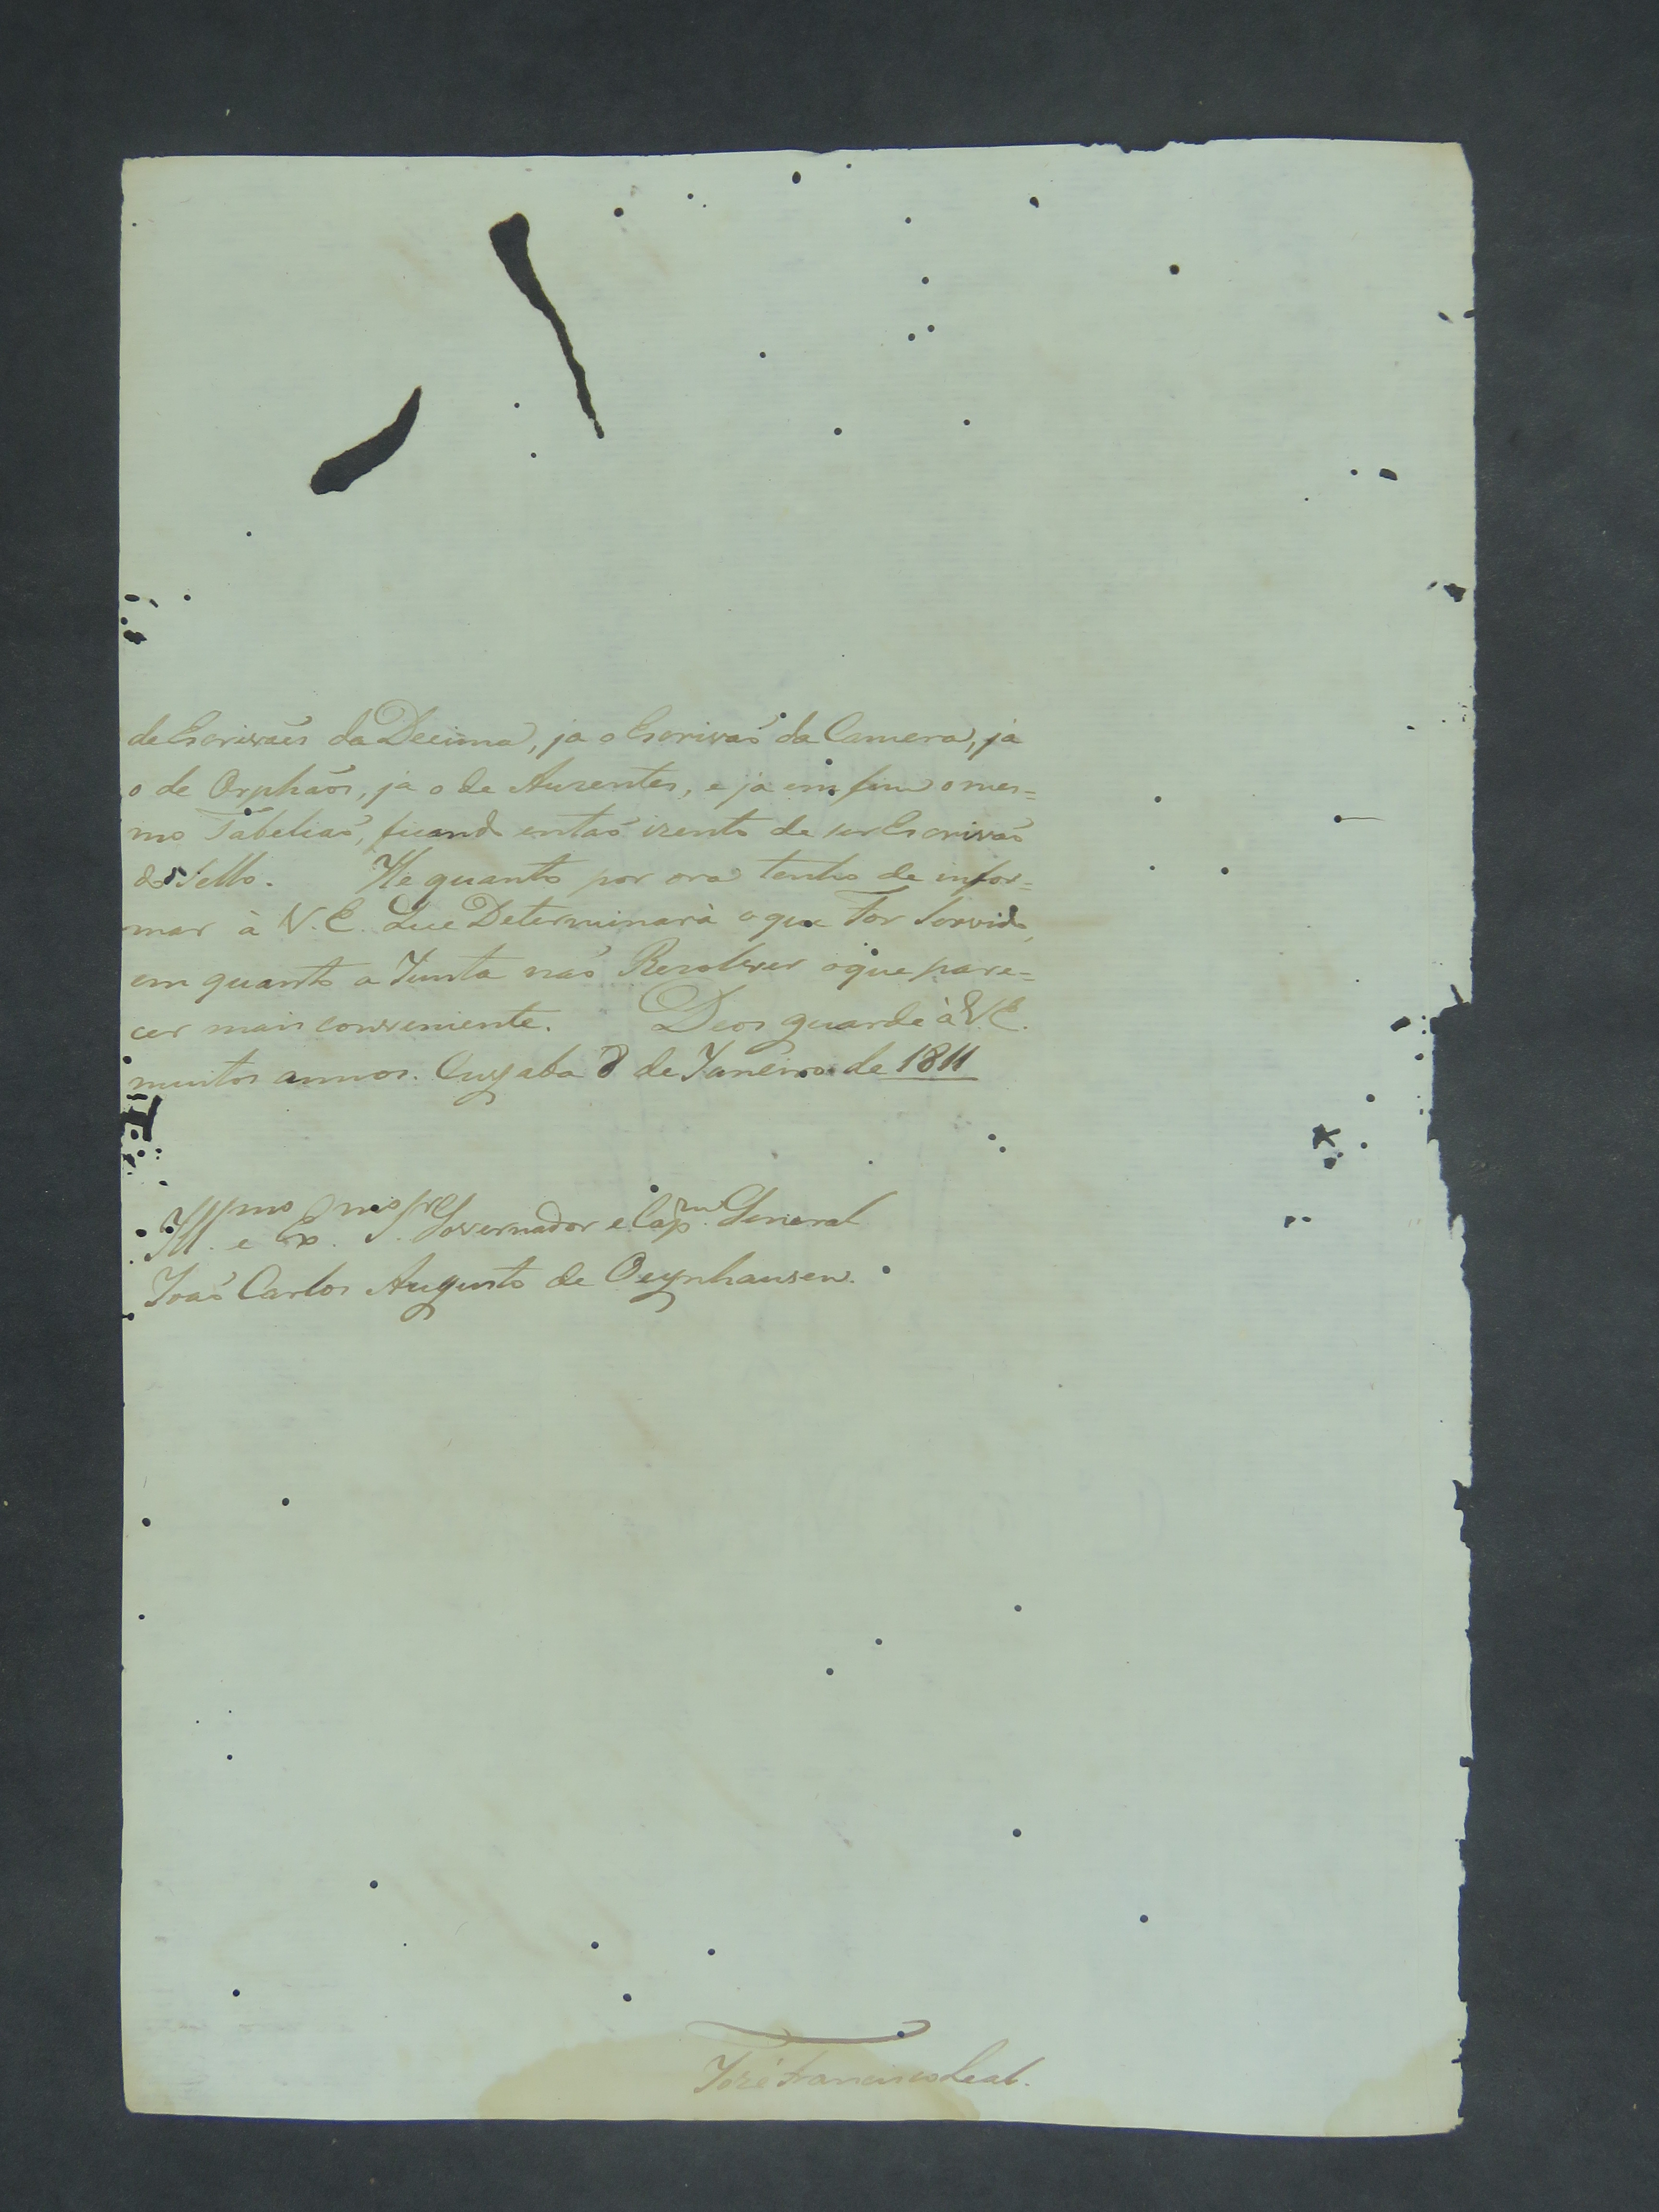 de Escrivaẽs da Decima, ja o Escrivaõ da Camera, ja
o de Orphaõs, ja o de Auzentes, e ja em fim o mes=
mo Tabeliaõ, ficando entaõ izento de ser Escrivaõ
do Sello. He quanto por ora tenho de infor=
mar à V. E. Que Determinarà o que For Servido,
em quanto a Junta naõ Rezolver o que pare=
cer mais conveniente. Deos guarde à V. E.
muitos annos. Cuyaba 8 de Janeiro de 1811
Ill.mo e Ex.mo S.r Governador e Cap.m General
Joaõ Carlos Augusto de Oeynhausen.
Jozé Francisco Leal.